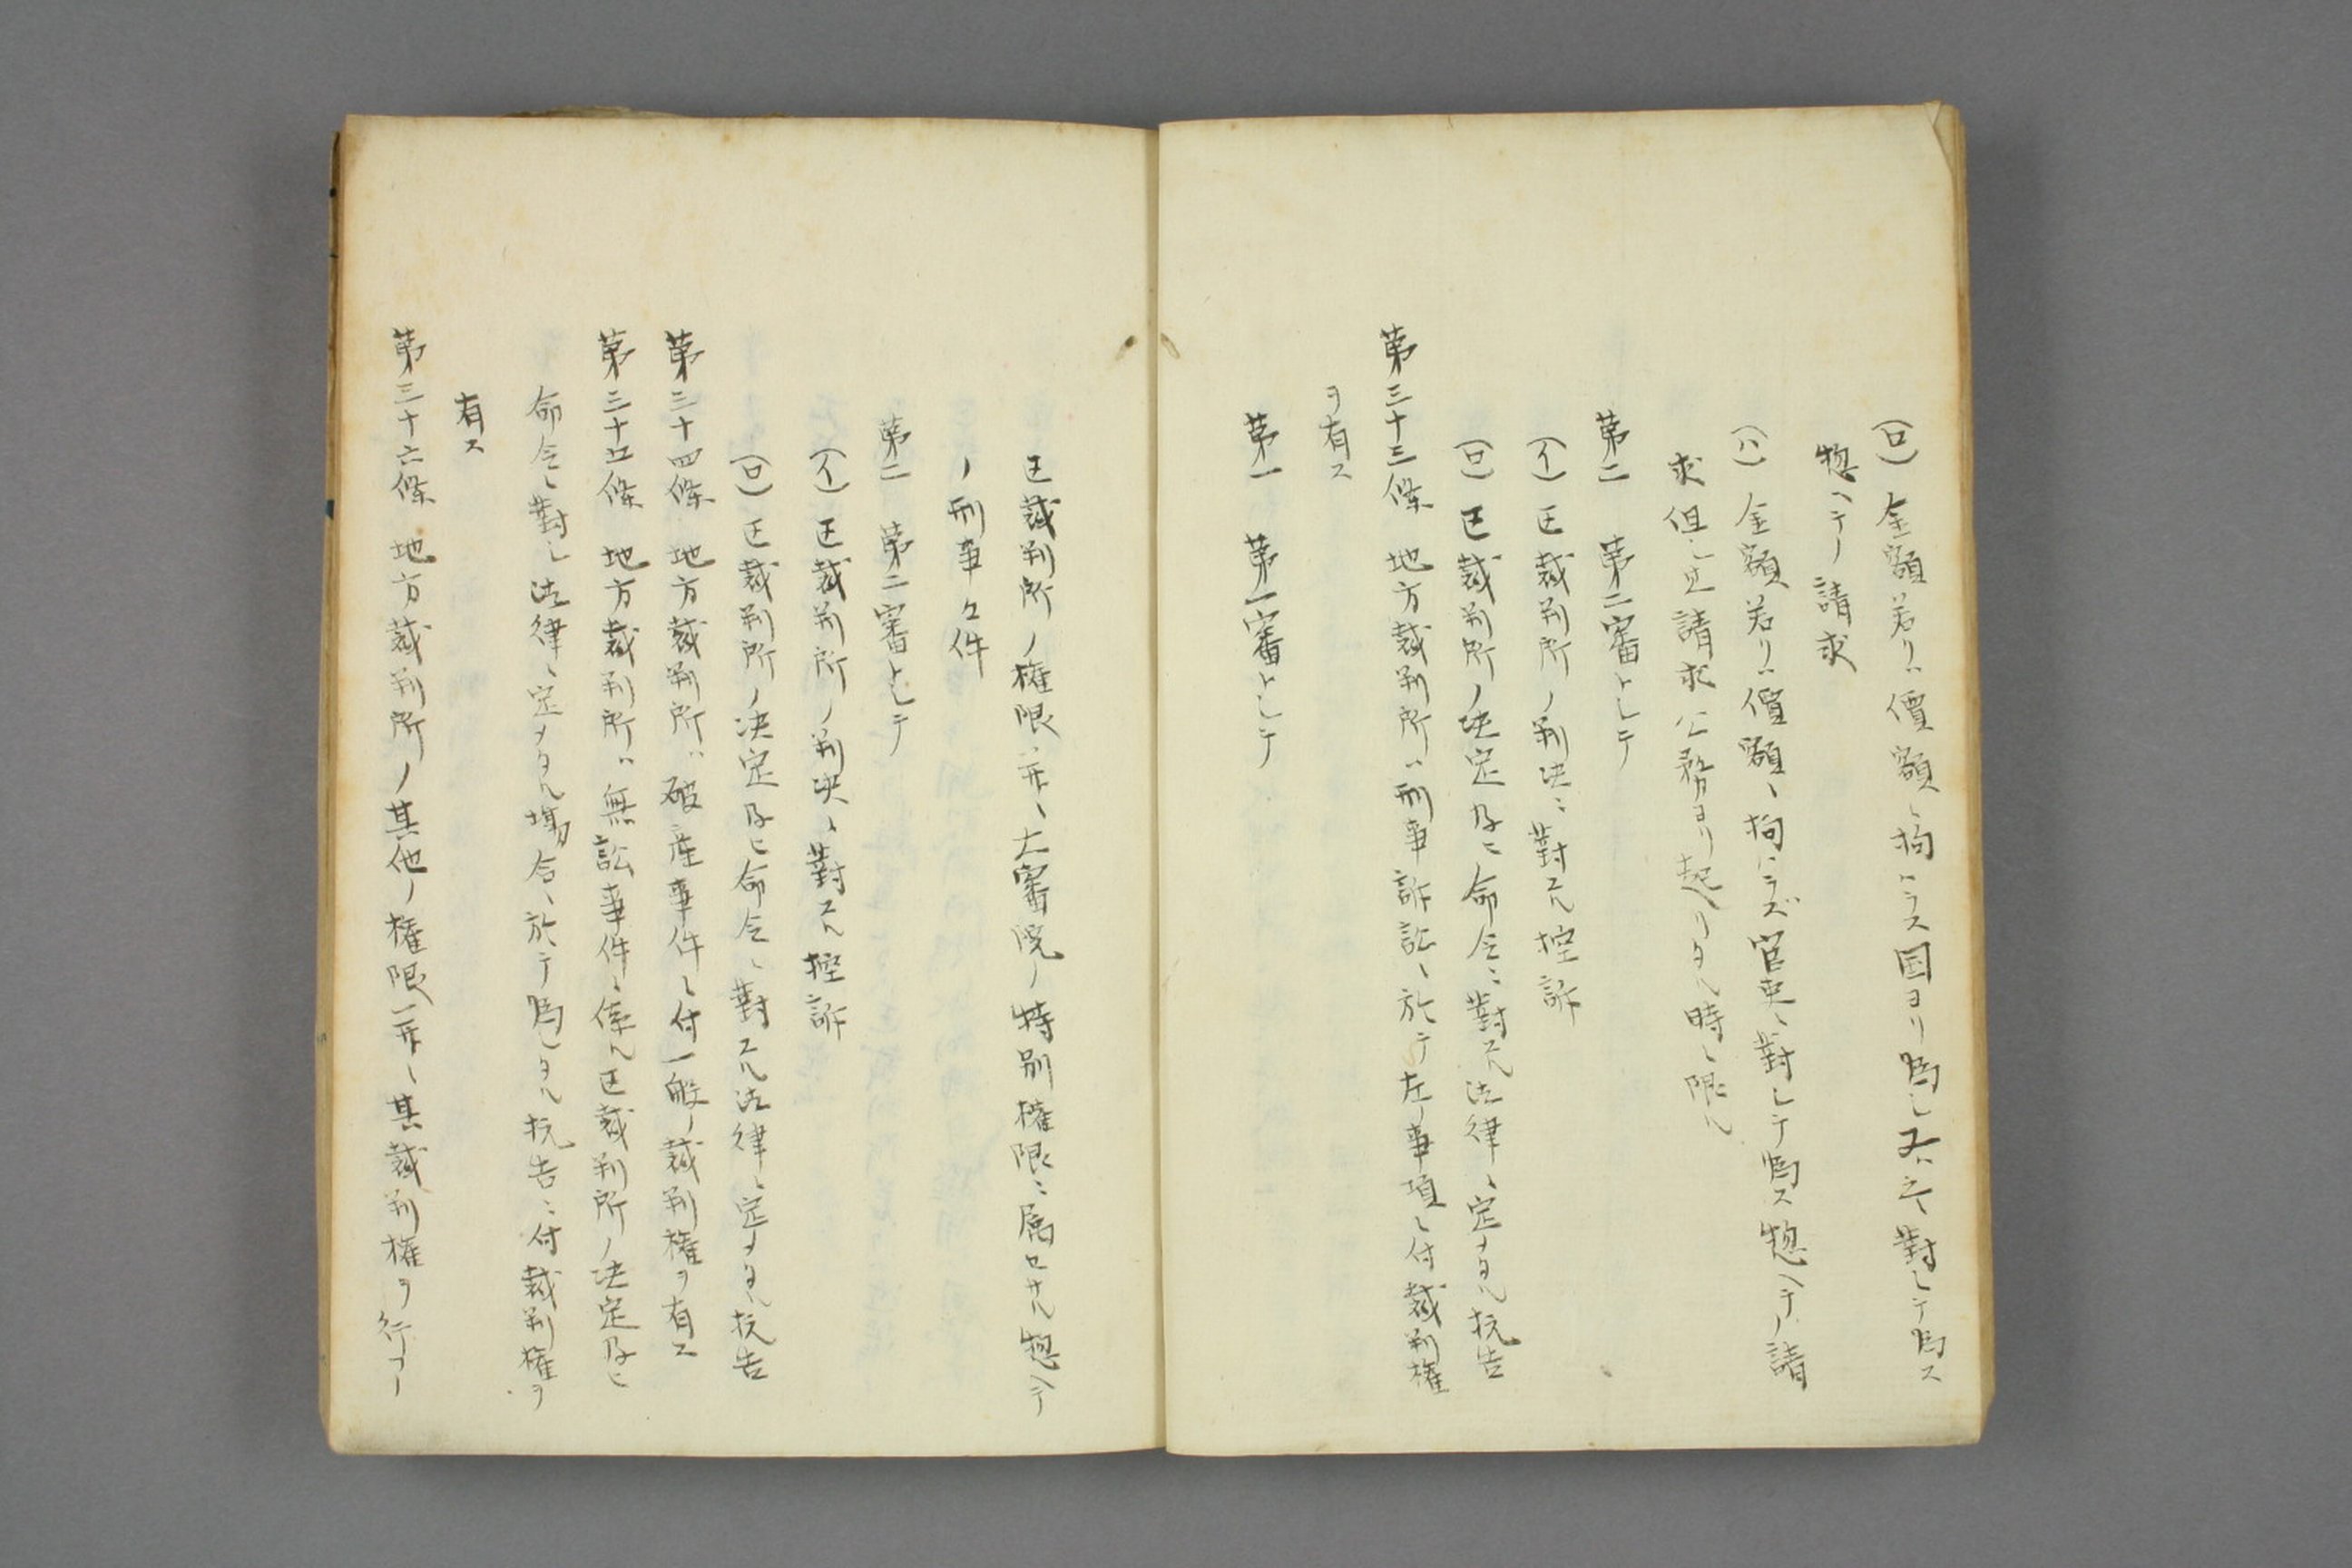 (ロ)金額若リハ價額ニ拘ハラス国ヨリ爲シ又ハ之ニ對シテ爲ス
惣ヘテノ請求
(ハ)金額若リハ價額ニ拘ハラズ官吏ニ對シテ爲ス惣ヘテノ請
求但シ此請求公務ヨリ起リタル時ニ限ル
第二 第二審トシテ
(イ)区裁判所ノ判决ニ對スル控訴
(ロ)区裁判所ノ决定及ヒ命令ニ對スル法律ニ定メタル抗告
第三十三條 地方裁判所ハ刑事訴訟ニ於テ左ノ事項ニ付裁判権
ヲ有ス
第一 第一審トシテ
区裁判所ノ権限并ニ大審院ノ特別権限ニ属セサル惣ヘテ
ノ刑事々件
第二 第二審トシテ
(イ)区裁判所ノ判决ニ對スル控訴
(ロ)区裁判所ノ决定及ヒ命令ニ對スル法律ニ定メタル抗告
第三十四條 地方裁判所ハ破産事件ニ付一般ノ裁判権ヲ有ス
第三十五條 地方裁判所ハ無訟事件ニ係ル区裁判所ノ决定及ヒ
命令ニ對シ法律ニ定メタル塲合ニ於テ爲シタル抗告ニ付裁判権ヲ
有ス
第三十六條 地方裁判所ノ其他ノ権限并ニ其裁判権ヲ行フー